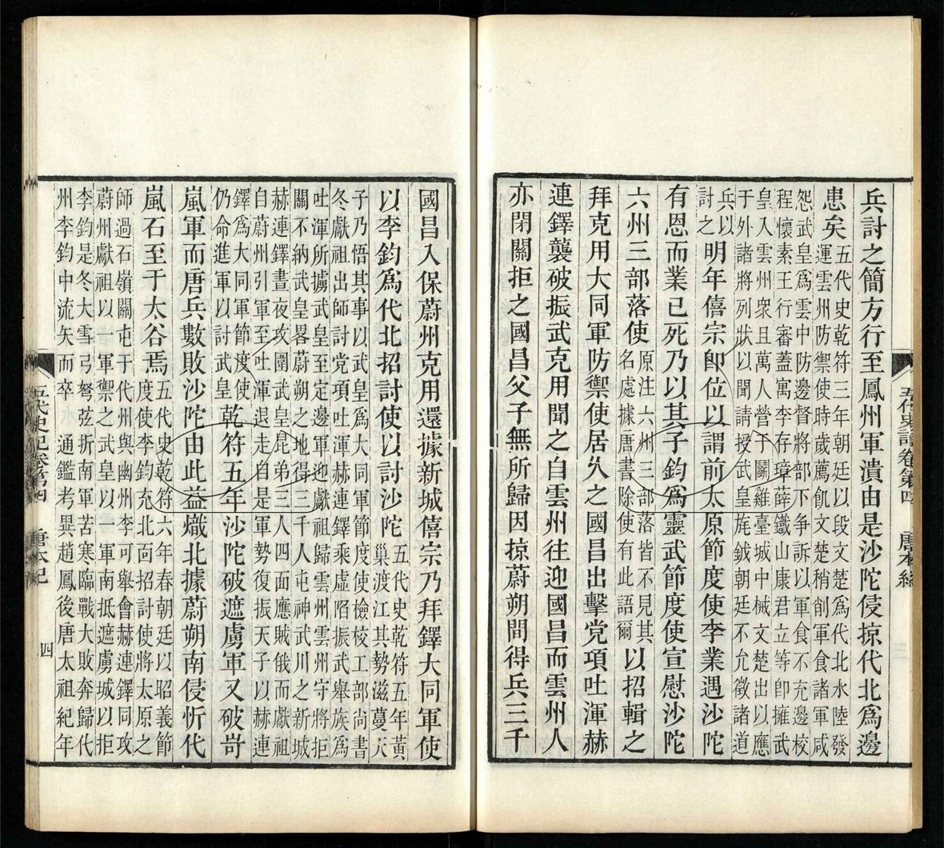 兵討之簡方行至鳳州軍潰由是沙陀侵掠代北爲邊
患矣
五代史乾符三年朝廷以段文楚爲代北水陸發
運雲州防禦使時歲薦飢文楚稍創軍食諸軍咸
怨武皇爲雲中防邊督將部下爭訴以軍食不充邊校
程懷素王行審蓋寓李存璋薛鐵山康君立等卽擁武
皇入雲州衆且萬人營于鬬雞臺城中械文楚出以應
于外諸將列狀以聞請授武皇旄鉞朝廷不允徵諸道
兵以
討之
明年僖宗卽位以謂前太原節度使李業遇沙陀
有恩而業已死乃以其子鈞爲靈武節度使宣慰沙陀
六州三部落使
原注六州三部落皆不見其
名處據唐書除使有此語爾
以招輯之
拜克用大同軍防禦使居久之國昌出擊党項吐渾赫
連鐸襲破振武克用聞之自雲州往迎國昌而雲州人
亦閉關拒之國昌父子無所歸因掠蔚朔間得兵三千
國昌入保蔚州克用還據新城僖宗乃拜鐸大同軍使
以李鈞爲代北招討使以討沙陀
五代史乾符五年黃
巢渡江其勢滋蔓天
子乃悟其事以武皇爲大同軍節度使檢校工部尚書
冬獻祖出師討党項吐渾赫連鐸乘虛陷振武舉族爲
吐渾所擄武皇至定邊軍迎獻祖歸雲州雲州守將拒
關不納武皇畧蔚朔之地得三千人屯神武川之新城
赫連鐸晝夜攻圍武皇昆弟三人四面應賊俄而獻祖
自蔚州引軍至吐渾退走自是軍勢復振天子以赫連
鐸爲大同軍節度使
仍命進軍以討武皇
乾符五年沙陀破遮虜軍又破岢
嵐軍而唐兵數敗沙陀由此益熾北據蔚朔南侵忻代
嵐石至于太谷焉
五代史乾符六年春朝廷以昭義節
度使李鈞充北面招討使將太原之
師過石嶺關屯于代州與幽州李可舉會赫連鐸同攻
蔚州獻祖以一軍禦之武皇以一軍南抵遮虜城以拒
李鈞是冬大雪弓弩弦折南軍苦寒臨戰大敗奔歸代
州李鈞中流矢而卒 通鑑考異趙鳳後唐太祖紀年
五代史記卷第四 唐本紀 四